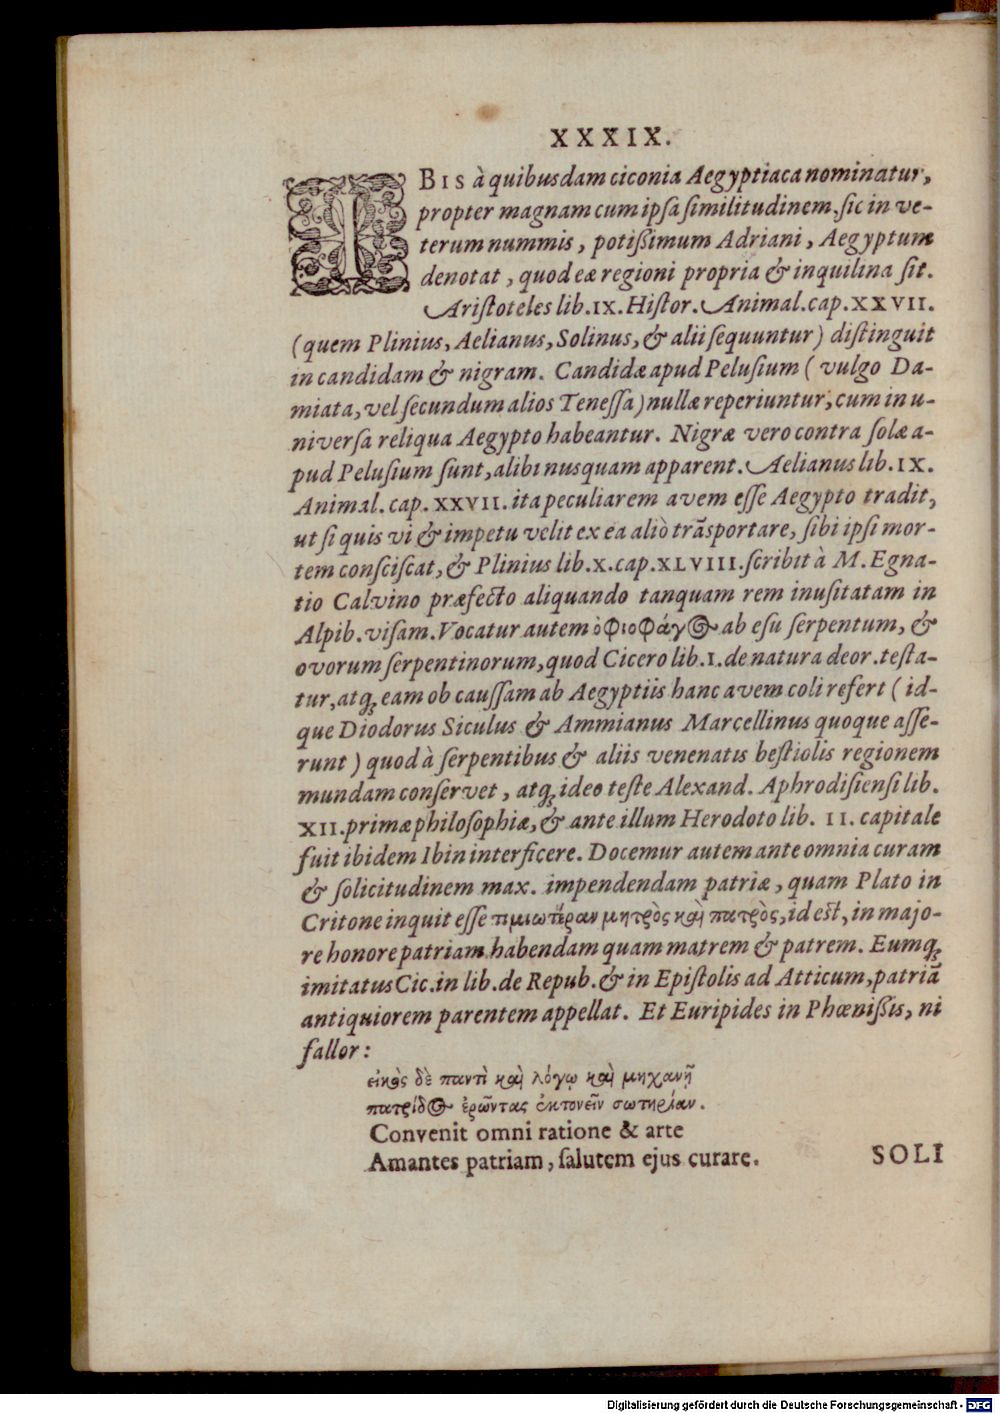 XXXIX.
IBIS à quibusdam ciconia Aegyptiaca nominatur,
propter magnam cum ipsa similitudinem, sic in ve-
terum nummis, potißimum Adriani, Aegyptum
denotat, quod eæ regioni propria & inquilina sit.
Aristoteles lib. IX. Histor. Animal. cap. XXVII.
(quem Plinius, Aelianus, Solinus, & alii sequuntur) distinguit
in candidam & nigram. Candidæ apud Pelusium ( vulgo Da-
miata, vel secundum alios Tenessa) nullæ reperiuntur, cum in u-
niversa reliqua Aegypto habeantur. Nigræ vero contra solæ a-
pud Pelusium sunt, alibi nusquam apparent. Aelianus lib. IX.
Animal. cap. XXVII. ita peculiarem avem esse Aegypto tradit,
ut si quis vi & impetu velit ex ea aliò trãsportare, sibi ipsi mor-
tem consciscat, & Plinius lib. X. cap. XLVIII. scribit à M. Egna-
tio Calvino præfecto aliquando tanquam rem inusitatam in
Alpib. visam. Vocatur autem ὀφιοφάγος ab esu serpentum, &
ovorum serpentinorum, quod Cicero lib. I. de natura deor. testa-
tur, atq; eam ob caussam ab Aegyptiis hanc avem coli refert ( id-
que Diodorus Siculus & Ammianus Marcellinus quoque asse-
runt ) quod à serpentibus & aliis venenatis bestiolis regionem
mundam conservet, atq; ideo teste Alexand. Aphrodisiensi lib.
XII. primæ philosophiæ, & ante illum Herodoto lib. II. capitale
fuit ibidem Ibin interficere. Docemur autem ante omnia curam
& solicitudinem max. impendendam patriæ, quam Plato in
Critone inquit esse τιμιωτέραν μητρὸς καὶ πατρὸς, id est, in majo-
re honore patriam habendam quam matrem & patrem. Eumq;
imitatus Cic. in lib. de Repub. & in Epistolis ad Atticum, patriã
antiquiorem parentem appellat. Et Euripides in Phœnißis, ni
fallor:
εἰκὸς δὲ παντὶ καὶ λόγῳ καὶ μηχανῇ
πατρίδος ἐρῶντας ἐκπονεῖν σωτηρίαν.
Convenit omni ratione & arte
Amantes patriam, salutem ejus curare.
SOLI
Digitalisierung gefördert durch die Deutsche Forschungsgemeinschaft - DFG